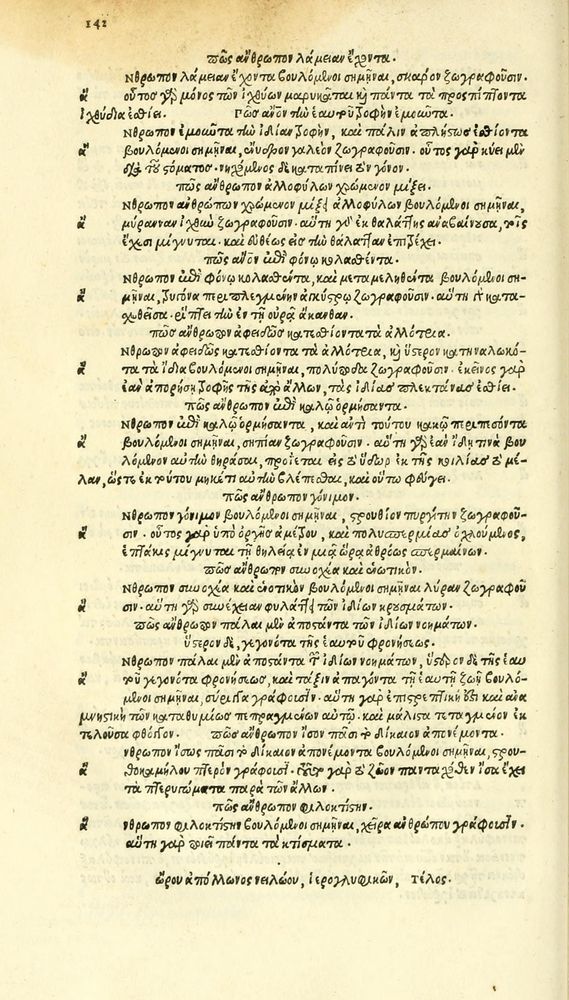 142
πῶς ἄνθρωπον λάμειαν ἔχοντα.
Νθρωπον λάμειαν ἔχοντα βουλόμενοι σημῆναι, σκάρον ζωγραφοῦσιν.
ἄ οὗτος γὸ μόνος τῶν ἰχθύων μαρυκᾶται κỳ πάντα τὰ προσπίπτοντα
ἰχθύδια ἐσθίει. πῶς ἄνον τὴν ἑαυτοῦ τροφὴν ἐμοῦντα.
Νθρωπον ἐμοῦντα τὴν ἰδίαν τροφὴν, καὶ πάλιν ἀπλήστως ἐσθίοντα
ἄ βουλόμενοι σημῆναι, ἔνυδρον γαλεὸν ζωγραφοῦσιν. οὗτος γὰρ κύει μὲν
διὰ τοῦ στόματος. νηχόμενος δὲ καταπίνει τὸν γόνον.
πῶς ἄνθρωπον ἀλλοφύλων χρώμενον μίξει.
Νθρωπον ἀνθρώπων χρώμενον μίξει ἀλλοφύλων βουλόμενοι σημῆναι,
ἄ μύρανναν ἰχθὺν ζωγραφοῦσιν. αὕτη γὸ ἐκ θαλάττης ἀναβαίνουσα, τοῖς
ἔχεσι μίγνυται. καὶ εὐθέως εἰς τὴν θάλατταν ἐπιτρέχει.
πῶς ἄνον ἐπὶ φόνῳ κολασθέντα.
Νθρωπον ἐπὶ φόνῳ κολασθέντα, καὶ μεταμεληθέντα βουλόμενοι ση-
ἄ μῆναι, τρυγόνα περιπλεγμένην ἀγκίστρῳ ζωγραφοῦσιν. αὕτη γὸ κατα-
σχεθεῖσα. ῥίπτει τὴν ἐν τῇ οὐρᾷ ἄκανθαν.
πῶς ἄνθρωπον ἀφειδῶς κατεσθίοντα τὰ ἀλλότρια.
Νθρωπον ἀφειδῶς κατεσθίοντα τὰ ἀλλότρια, κỳ ὕστερον κατηναλωκό-
ἄ τα τὰ ἴδια βουλόμενοι σημῆναι, πολύποδα ζωγραφοῦσιν. ἐκεῖνος γὰρ
ἐὰν ἀπορήσῃ τροφῆς τῆς ἀπὸ ἄλλων, τὰς ἰδίας πλεκτάνας ἐσθίει.
πῶς ἄνθρωπον ἐπὶ καλῷ ὁρμήσαντα.
Νθρωπον ἐπὶ καλῷ ὁρμήσαντα, καὶ ἀντὶ τούτου κακῷ περιπεσόντα
ἄ βουλόμενοι σημῆναι, σηπίαν ζωγραφοῦσιν. αὕτη γὸ ἐὰν ἴδῃ τινὰ βου
λόμενον αὐτὴν θηρᾶσαι, προΐεται εἰς τὸ ὕδωρ ἐκ τῆς κοιλίας τὸ μέ-
λαν, ὥστε ἐκ τούτου μηκέτι αὐτὴν βλέπεσθαι, καὶ οὕτω φεύγει.
πῶς ἄνθρωπον γόνιμον.
Νθρωπον γόνιμον βουλόμενοι σημῆναι, στρουθίον πυργίτην ζωγραφοῦ-
ἄ σιν. οὗτος γὰρ ὑπὸ ὀργῆς ἀμέτρου, καὶ πολυσπερμίας ὀχλούμενος,
ἑπτάκις μίγνυται τῇ θηλείᾳ ἐν μιᾷ ὥρᾳ ἀθρόως σπερμαίνων.
πῶς ἄνθρωπον συνοχέα καὶ ἑνωτικόν.
Νθρωπον συνοχέα καὶ ἑνωτικὸν βουλόμενοι σημῆναι λύραν ζωγραφοῦ
ἄ σιν. αὕτη γὸ συνέχειαν φυλάττει τῶν ἰδίων κρουσμάτων.
πῶς ἄνθρωπον πάλαι μὲν ἀποστάντα τῶν ἰδίων νοημάτων.
ὕστερον δὲ, γεγονότα τῆς ἑαυτοῦ φρονήσεως.
Νθρωπον πάλαι μὲν ἀποστάντα τῶν ἰδίων νοημάτων, ὕστερον δὲ τῆς ἑαυ
ἄ τοῦ γεγονότα φρονήσεως, καὶ τάξιν ἀπάγοντα τῇ ἑαυτῇ ζωῇ βουλό-
μενοι σημῆναι, σύριγγα γράφουσιν. αὕτη γὰρ ἐπιστρεπτική ἐστι καὶ ἀνα
μνηστικὴ τῶν καταθυμίως πεπραγμένων αὐτῷ. καὶ μάλιστα τεταγμένον ἐκ
τελοῦσα φθόγγον. πῶς ἄνθρωπον ἴσον πᾶσι τὸ δίκαιον ἀπονέμοντα.
νθρωπον ἴσως πᾶσι τὸ δίκαιον ἀπονέμοντα βουλόμενοι σημῆναι, στρου-
ἄ θοκαμήλου πτερὸν γράφουσι. τοῦτο γὰρ τὸ ζῶον πανταχόθεν ἴσα ἔχει
τὰ πτερυγώματα παρὰ τῶν ἄλλων.
πῶς ἄνθρωπον φιλοκτίστην.
ἄ νθρωπον φιλοκτίστην βουλόμενοι σημῆναι, χεῖρα ἀνθρώπου γράφουσιν.
αὕτη γὰρ ποιεῖ πάντα τὰ κτίσματα.
ὥρου ἀπόλλωνος νειλώου, ἱερογλυφικῶν, τέλος.